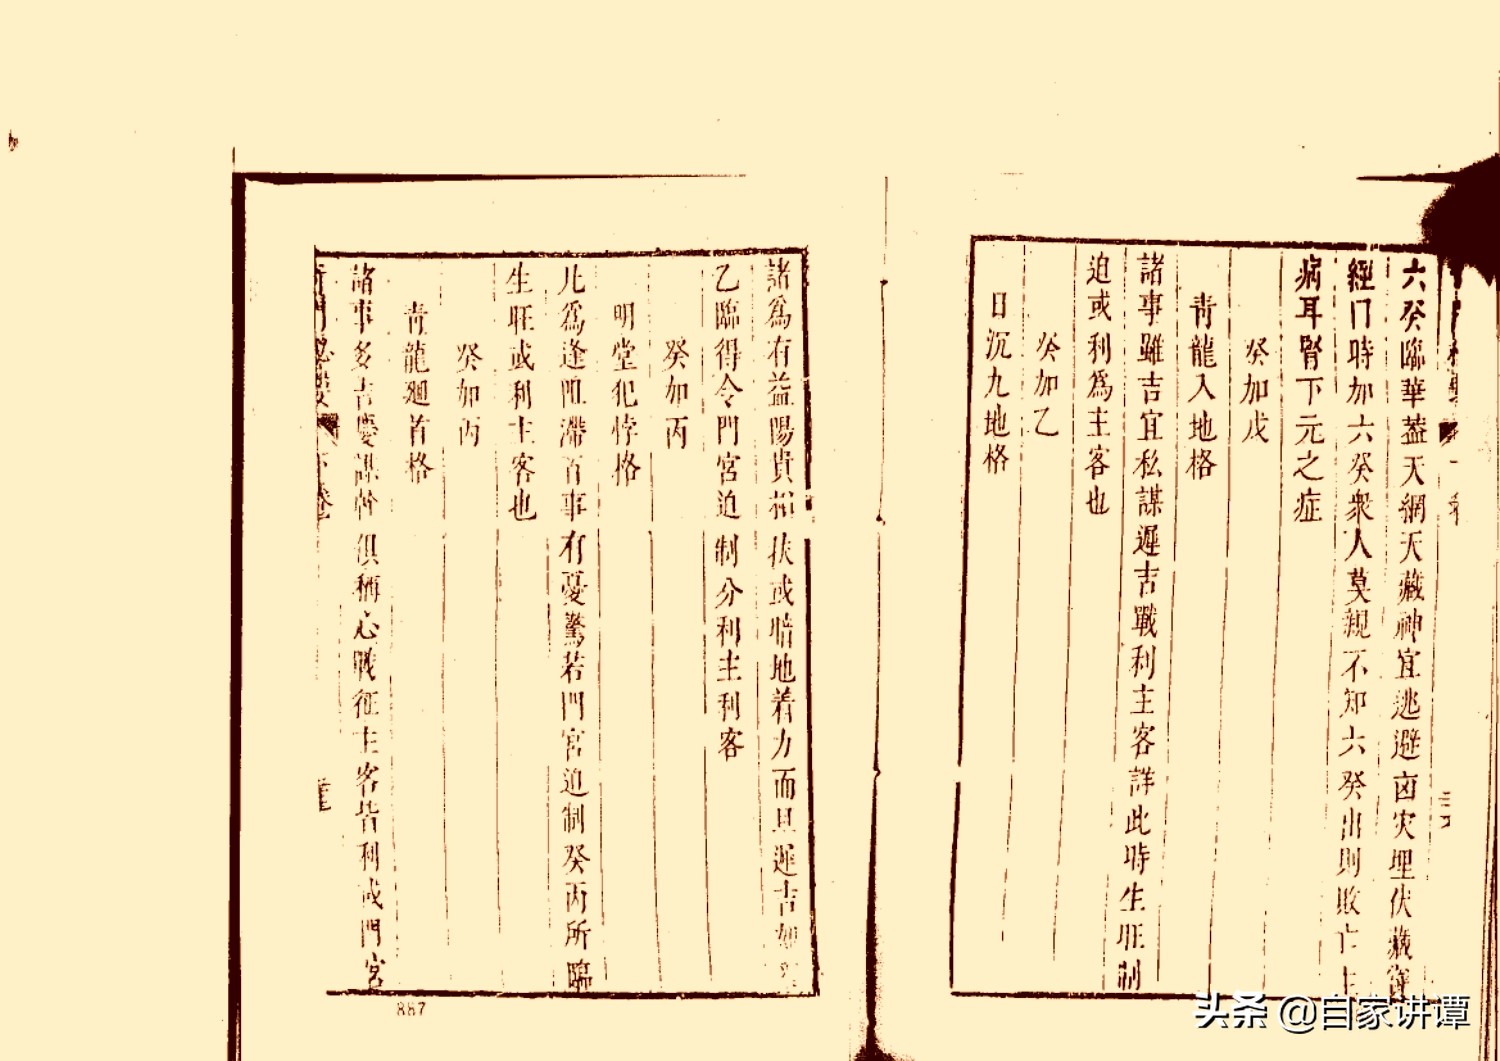 六癸臨華葢天網天藏神宜逃避囱灾埋伏藏寳
經门時加六癸衆人莫親不知六癸出則敗亡主
病耳腎下元之症
癸加戊
青龍入地格
諸事雖吉宜私謀遲吉戰利主客詳此時生旺制
迫或利爲主客也
癸加乙
日沉九地格
諸爲有益陽貴扶或暗地着力而且遲吉如
乙臨得令門宮迫制分利主利客
癸加丙
明堂犯悖格
凡爲逢阻滯百事有憂驚若門宮迫制癸丙所臨
生旺或利主客也
癸加丙
青龍廻首格
諸事多吉慶謀幹俱稱心戰征主客皆利或門宮
887
头条 @自家讲谭